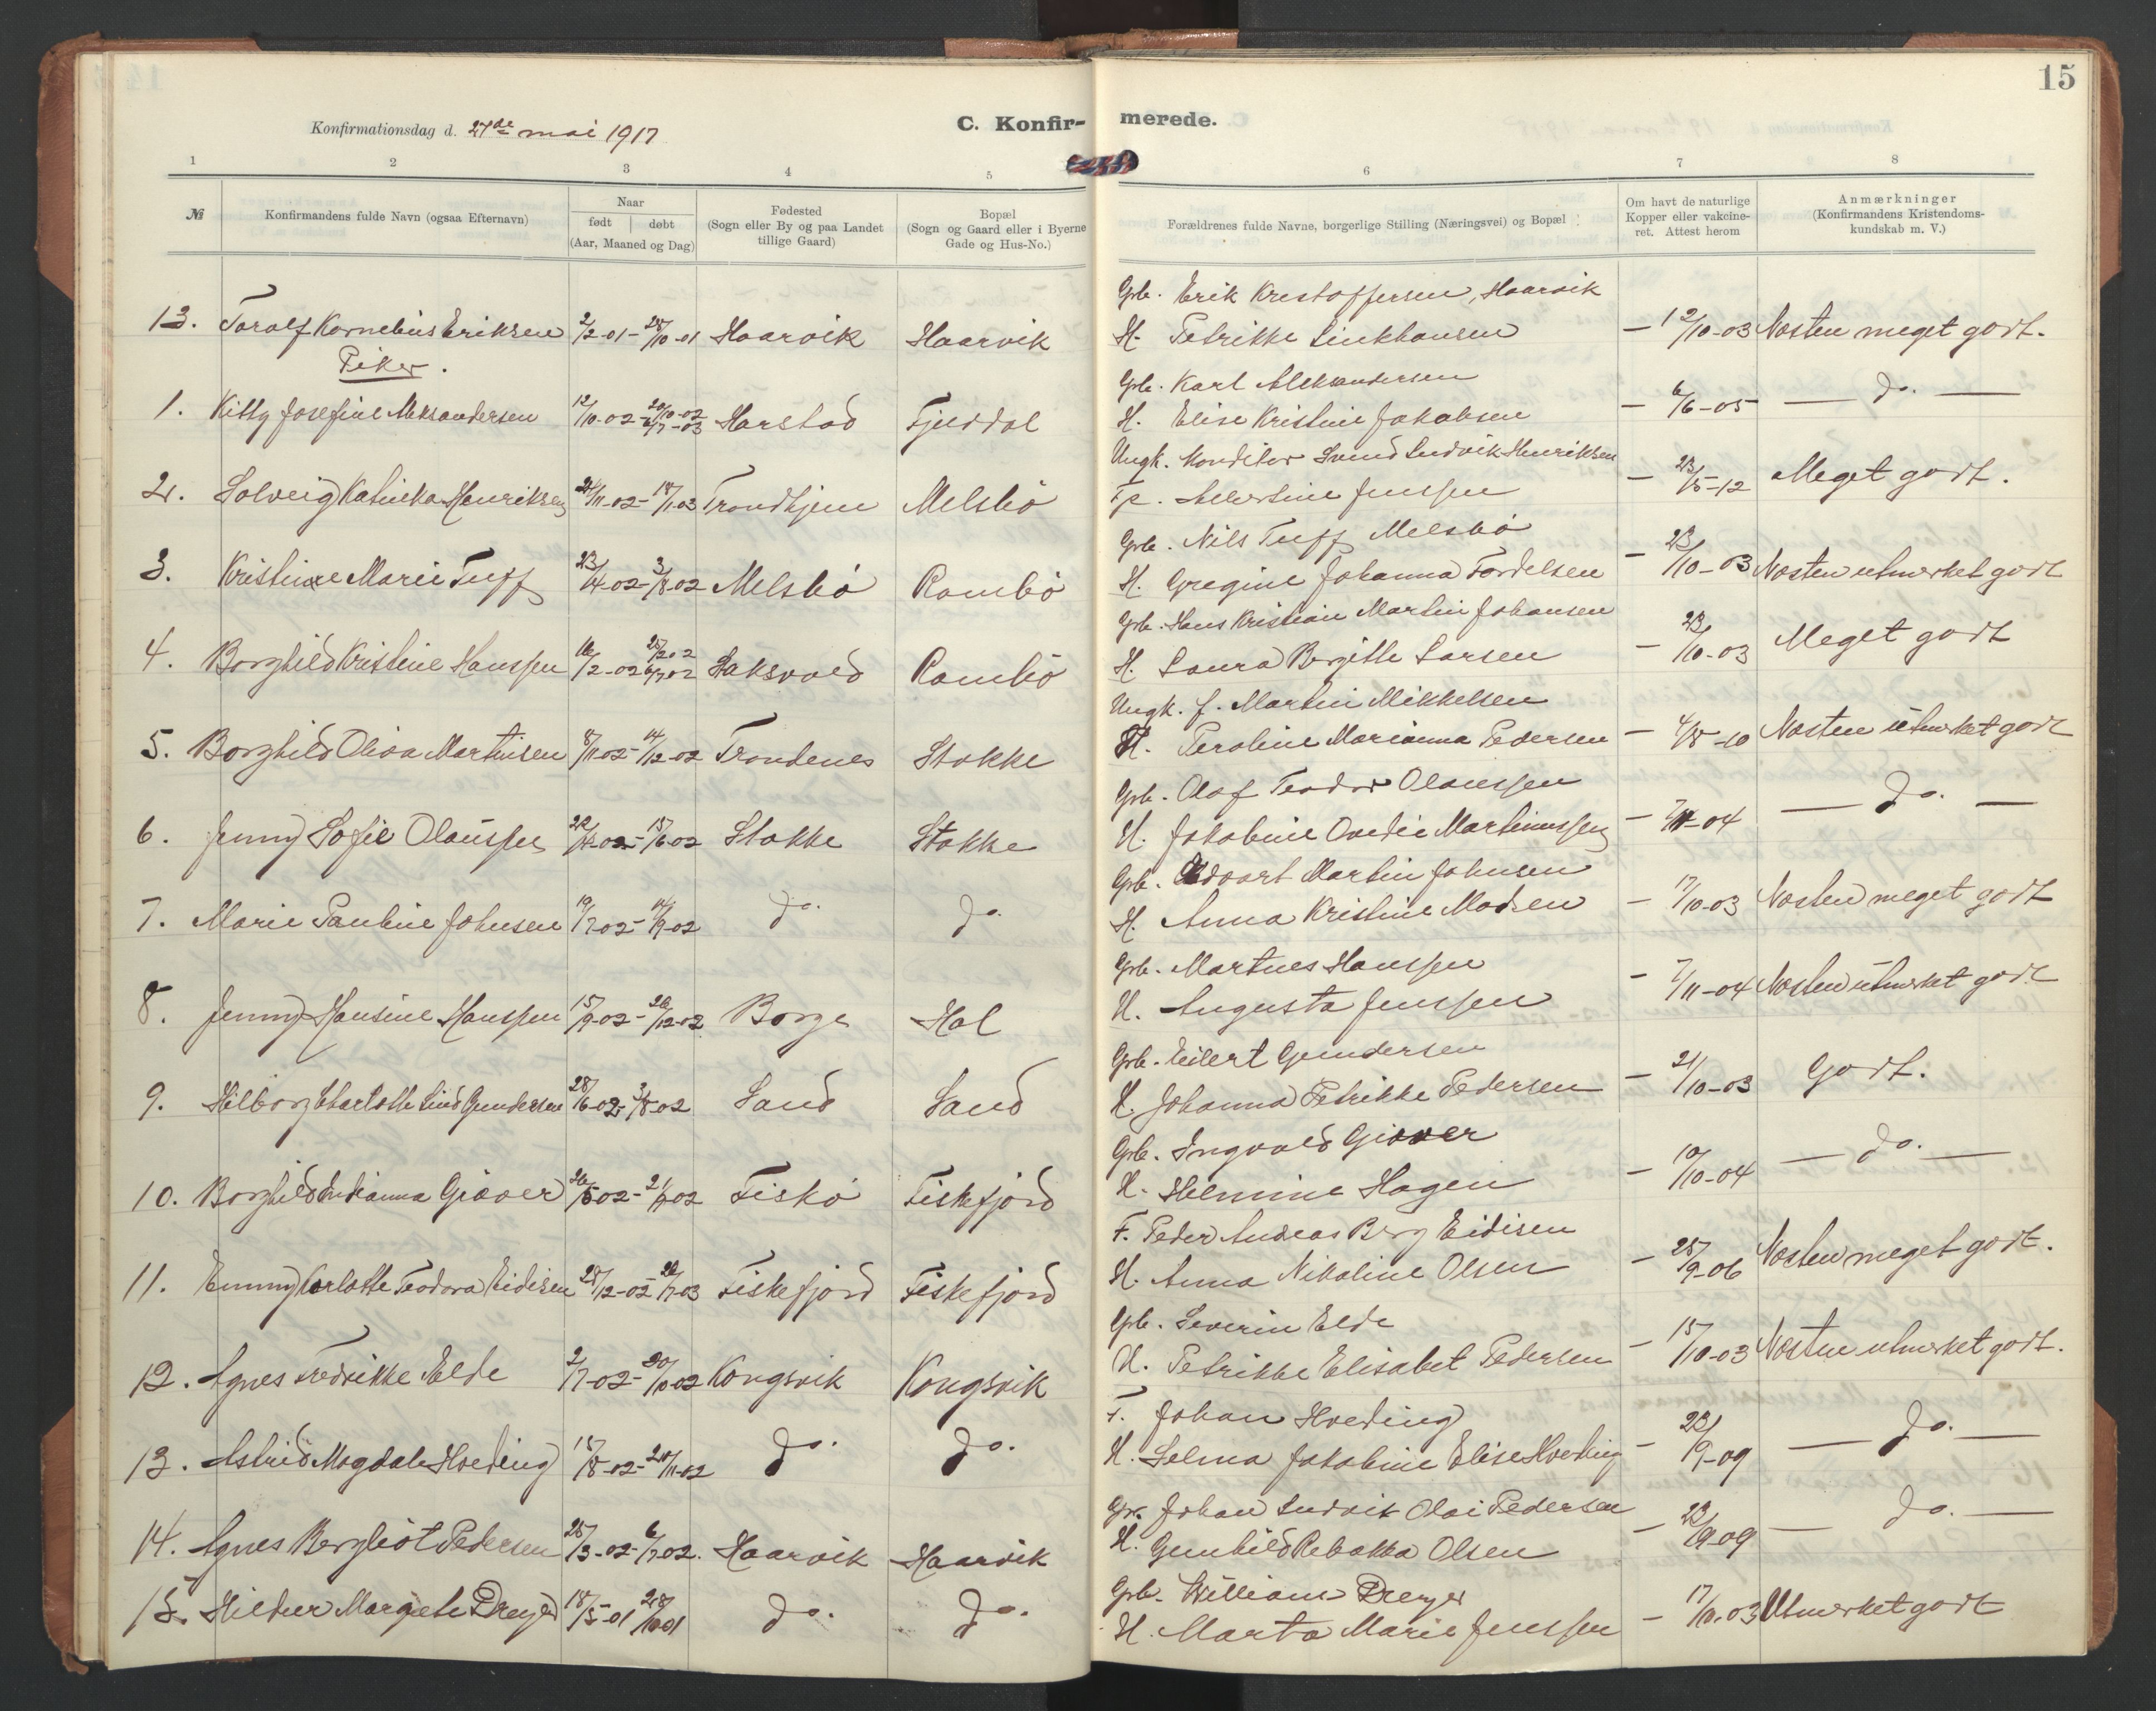 15
Konfirmationsdag d. 27de mai 1917
C. Konfir-
merede.
1 2 3 4 5 6 7 8
№ Konfirmandens fulde Navn (ogsaa Efternavn) Naar født døbt (Aar, Maaned og Dag) Fødested (Sogn eller By og paa Landet tillige Gaard) Bopæl (Sogn og Gaard eller i Byerne Gade og Hus-No.) Forældrenes fulde Navne, borgerlige Stilling (Næringsvei) og Bopæl Om havt de naturlige Kopper eller vakcineret. Attest herom Anmærkninger (Konfirmandens Kristendomskundskab m. V.)
Grb. Erik Kristoffersen, Haarvik
13. Toralf Kornelius Eriksen 2/2-01 - 28/10-01 Haarvik Haarvik H. Petrikke Linkhausen - 12/10-03 Næsten meget godt.
Piker.
Grb. Karl Aleksandersen
1. Kitty Josefine Aleksandersen 12/10-02 - 20/10-02 6/7-03 Harstad Fjeldal H. Elise Kristine Jakobsen - 6/6-05 — do. —
Ungk. Konditor Svend Ludvik Henriksen
2. Solveig Katinka Henriksen 24/11-02 - 18/1-03 Trondhjem Melsbö Fp. Albertine Jenssen - 23/5-12 Meget godt.
Grb. Nils Tuff Melsbö
3. Kristine Marie Tuff 23/4-02 - 3/8-02 Melsbö Rambö H. Gregine Johanna Tordelsen - 23/10-03 Næsten utmerket godt
Grb. Hans Kristian Martin Johansen
4. Borghild Kristine Hanssen 16/2-02 6/7 02 Saksvold Rambö H. Laura Birgitte Larsen - 23/10-03 Meget godt
Ungk. f. Martin Mikkelsen
5. Borghild Oliva Martinsen 8/11-02 - 14/12-02 Trondenes Stokke H. Peroline Marianna Pedersen - 4/8-10 Næsten utmerket godt
Grb. Olaf Teodor Olaussen
6. Jenny Sofie Olaussen 22/4-02 - 15/6-02 Stokke Stokke H. Jakobine Ovedie Martinussen - 7/11-04 — do. —
Grb. Edvart Martin Johnsen
7. Marie Pauline Johnsen 19/7-02 - 14/9-02 do. do. H. Anna Kristine Madsen - 17/10-03 Næsten meget godt
Grb. Martnes Hanssen
8. Jenny Hansine Hanssen 15/9-02 - 26/12-02 Borge Hol H. Augusta Jenssen - 7/11-04 Næsten utmerket godt
Grb. Eilert Gundersen
9. Hilborg Charlotte Lind Gundersen 28/6-02 - 3/8-02 Sand Sand H. Johanna Petrikke Pedersen - 21/10-03 Godt.
Grb. Ingvald Giæver
10. Borghild Indianna Giæver 26/5-02 - 21/9 02 Fiskö Fiskefjord H. Helmine Hagen - 10/10-04 — do. —
F. Peder Andreas Berg Eidisen
11. Emmy Karlotte Teodora Eidisen 28/12-02 - 26/7-03 Fiskefjord Fiskefjord H. Anna Nikoline Olsen - 25/9-06 Næsten meget godt.
Grb. Severin Elde
12. Agnes Fredrikke Elde 2/7-02 - 20/10-02 Kongsvik Kongsvik H. Petrikke Elisabet Pedersen - 15/10-03 Næsten utmerket godt.
F. Johan Hveding
13. Astrid Magdale Hveding 15/8-02 - 20/11-02 do. do. H. Selma Jakobine Elise Hveding - 23/9-09 — do. —
Gr. Johan Ludvik Olai Pedersen
14. Agnes Bergliot Pedersen 25/3-02 - 6/7 02. Haarvik Haarvik H. Gunhild Rebekka Olsen - 23/9-09 — do. —
Grb. William Dreyer
15. Hildur Margrete Dreyer 18/5-01 28/10 01 do. do. H. Marta Marie Jenssen - 17/10-03 Utmerket godt